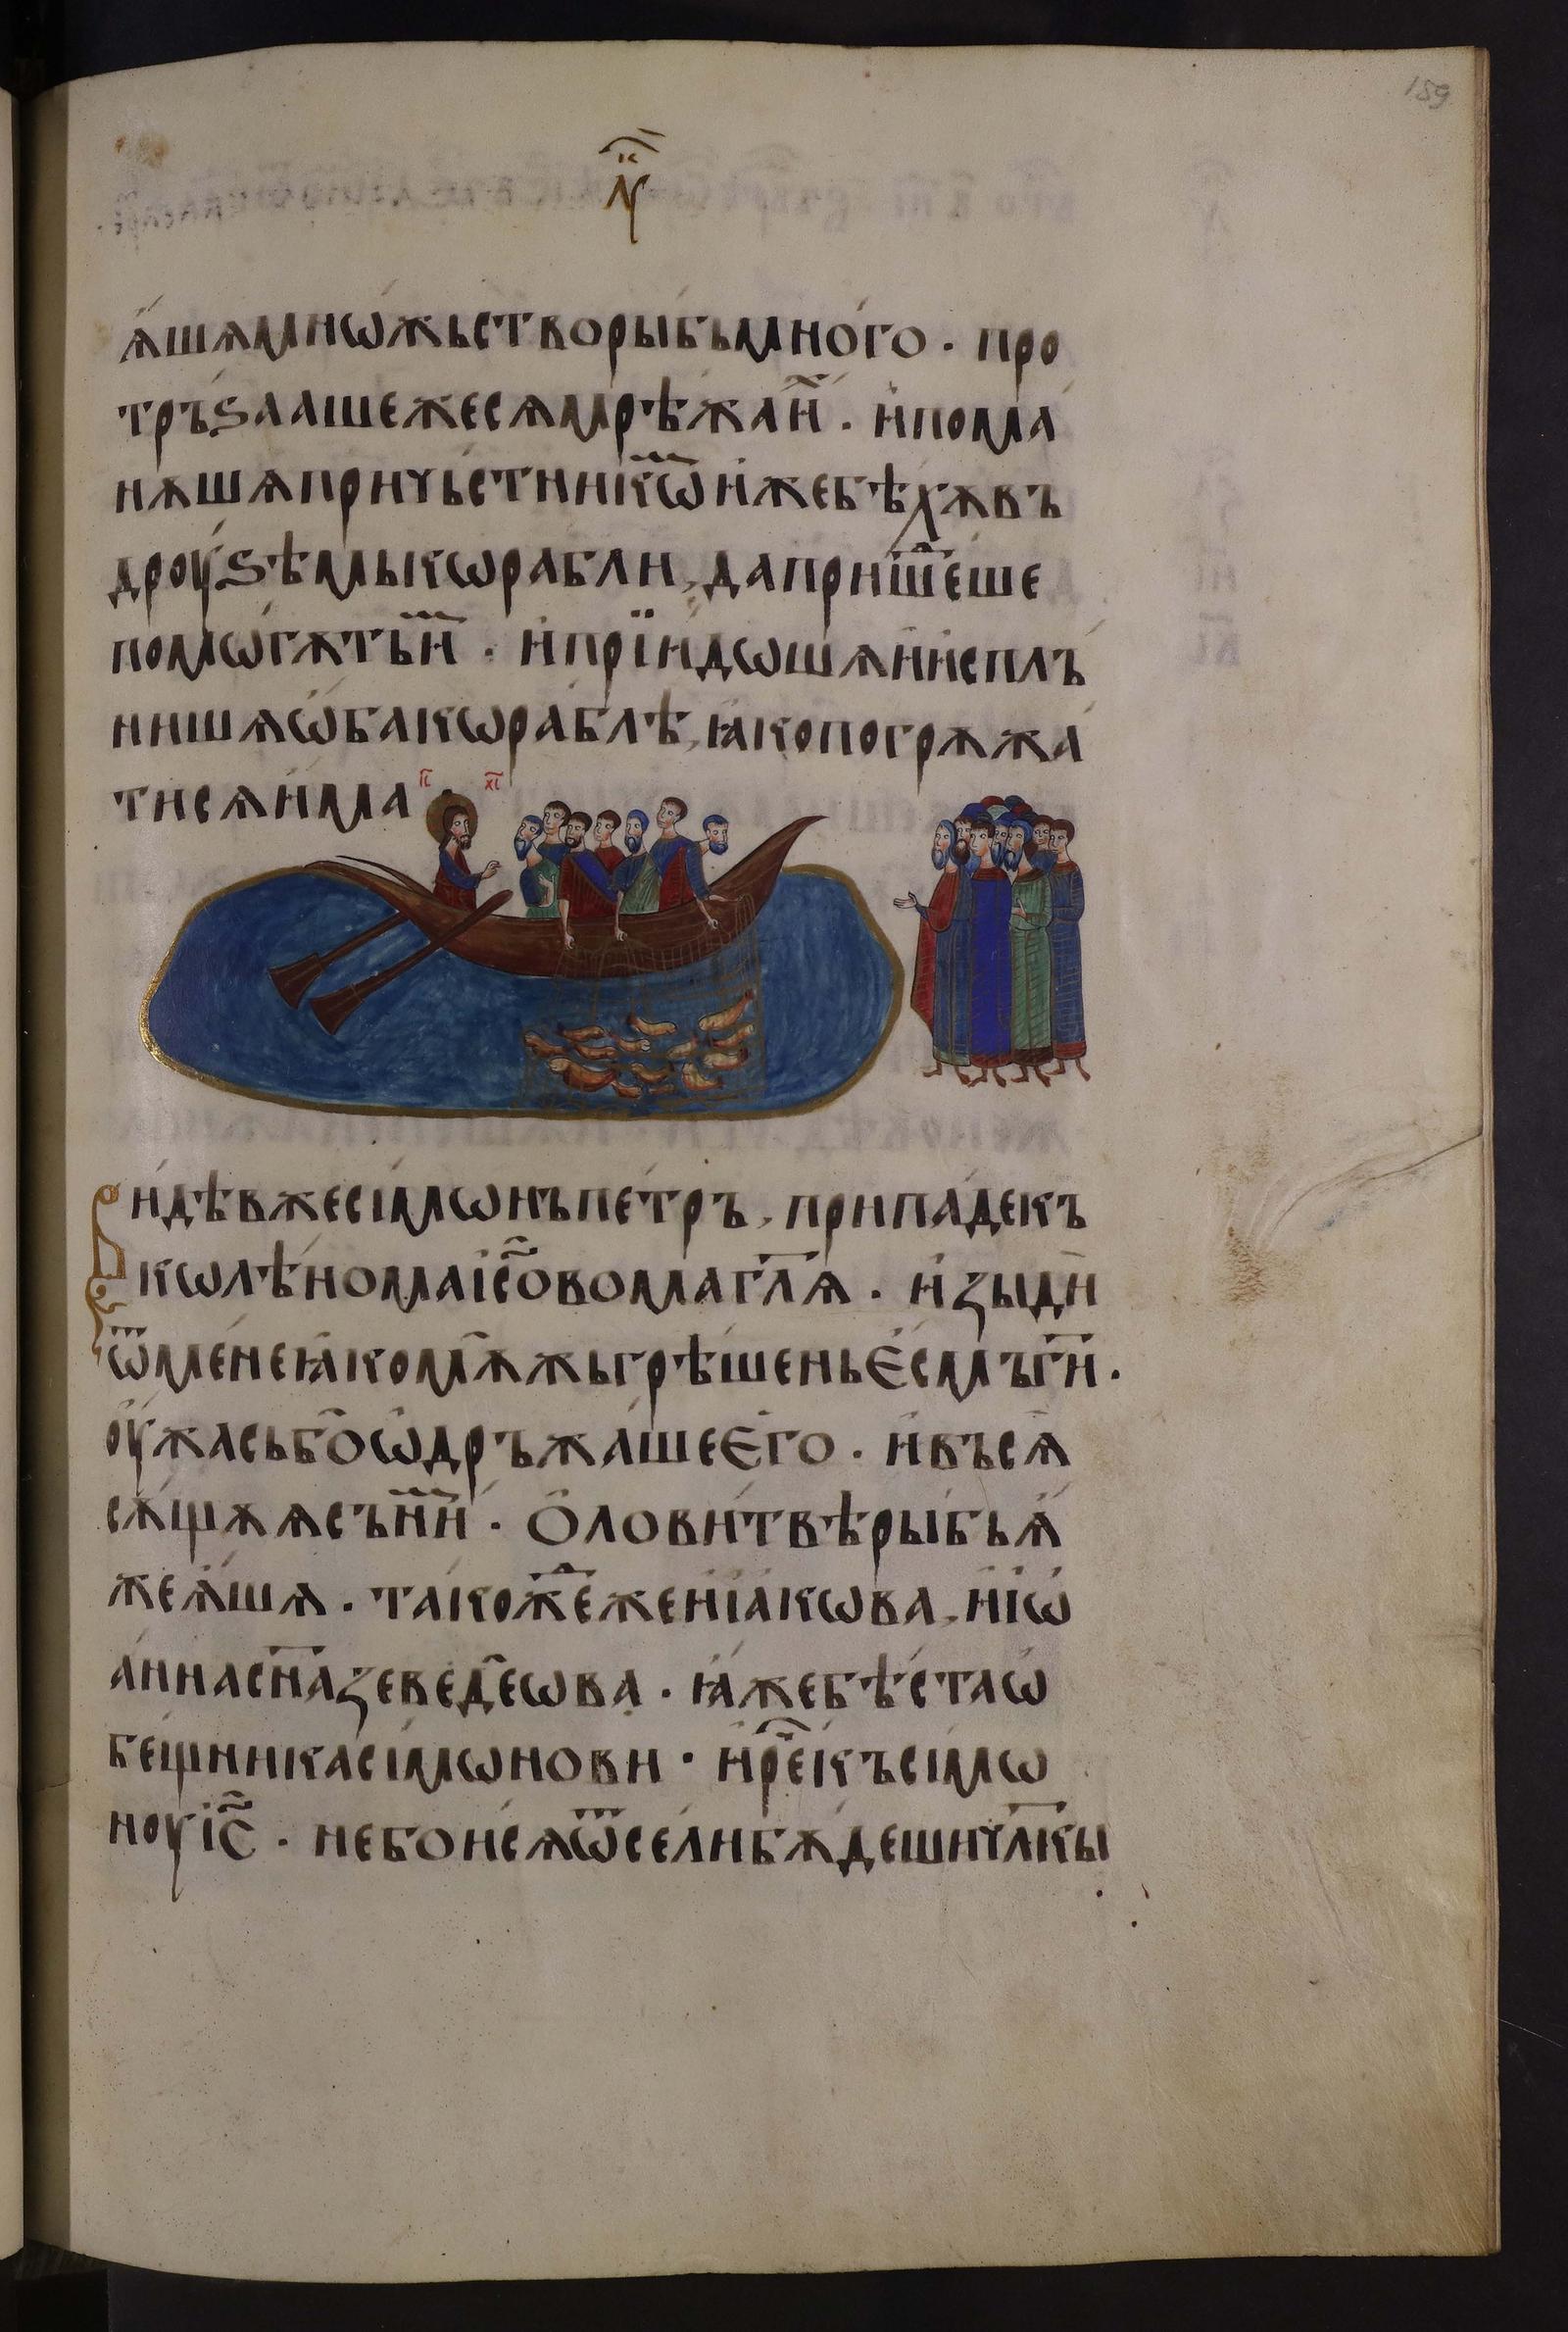 159
л҃к
ѧ҆́шѧмнѡ́жьстворы́бьмно́го · про
тръѕа́ашежесѧмрѣ́жаи҆̑ · и҆пома
нѫшѧприче́стникѡ҃м и҆́жебѣ́хѫвъ
дроуѕѣ́мькѡра́бли, даприше́⁠дше
помо́гѫтьи҆̑м · и҆прїи́дошѧи҆и҆спль
нишѧѡ҆́бакѡра́блѣ, ꙗ҆́копогрѫжа́
тисѧи҆́ма
і҃с х҃с
Ви́дѣвжесі́мѡнъпе́тръ, припа́декъ
кѡлѣ́номаі҆с҃овомагл҃ѧ · и҆зыдѝ
ѿме́неꙗ҆́комѫ́жьгрѣ́шеньє҆́смъг҃и ·
оу҆́жасьбо̑ѡ҆дръжа́шеє҆го · и҆въсѧ̀
сѫ́щѫѧсъни́м · Ѻ҆лови́твѣры́бьѧ҆́
жеѧ҆́шѧ · та́кожⷣежеи҆і҆а́кѡва, и҆і҆ѡ
а́ннасн҃азеведе́ѡва · ꙗ҆́жебѣ́стаѡ҆́
бещникасі́мѡнови · и҆рⷱ҇екъсі́мѡ
ноуі҆с҃ · небои́сѧѿсе́либѫ́дешичл҃кы